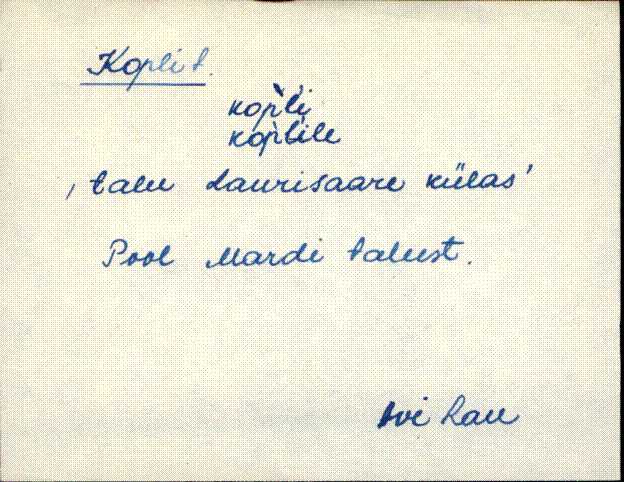 Kopli t.
kop̀li
kop̀lile
'talu Laurisaare külas'
Pool Mardi talust.
Rau